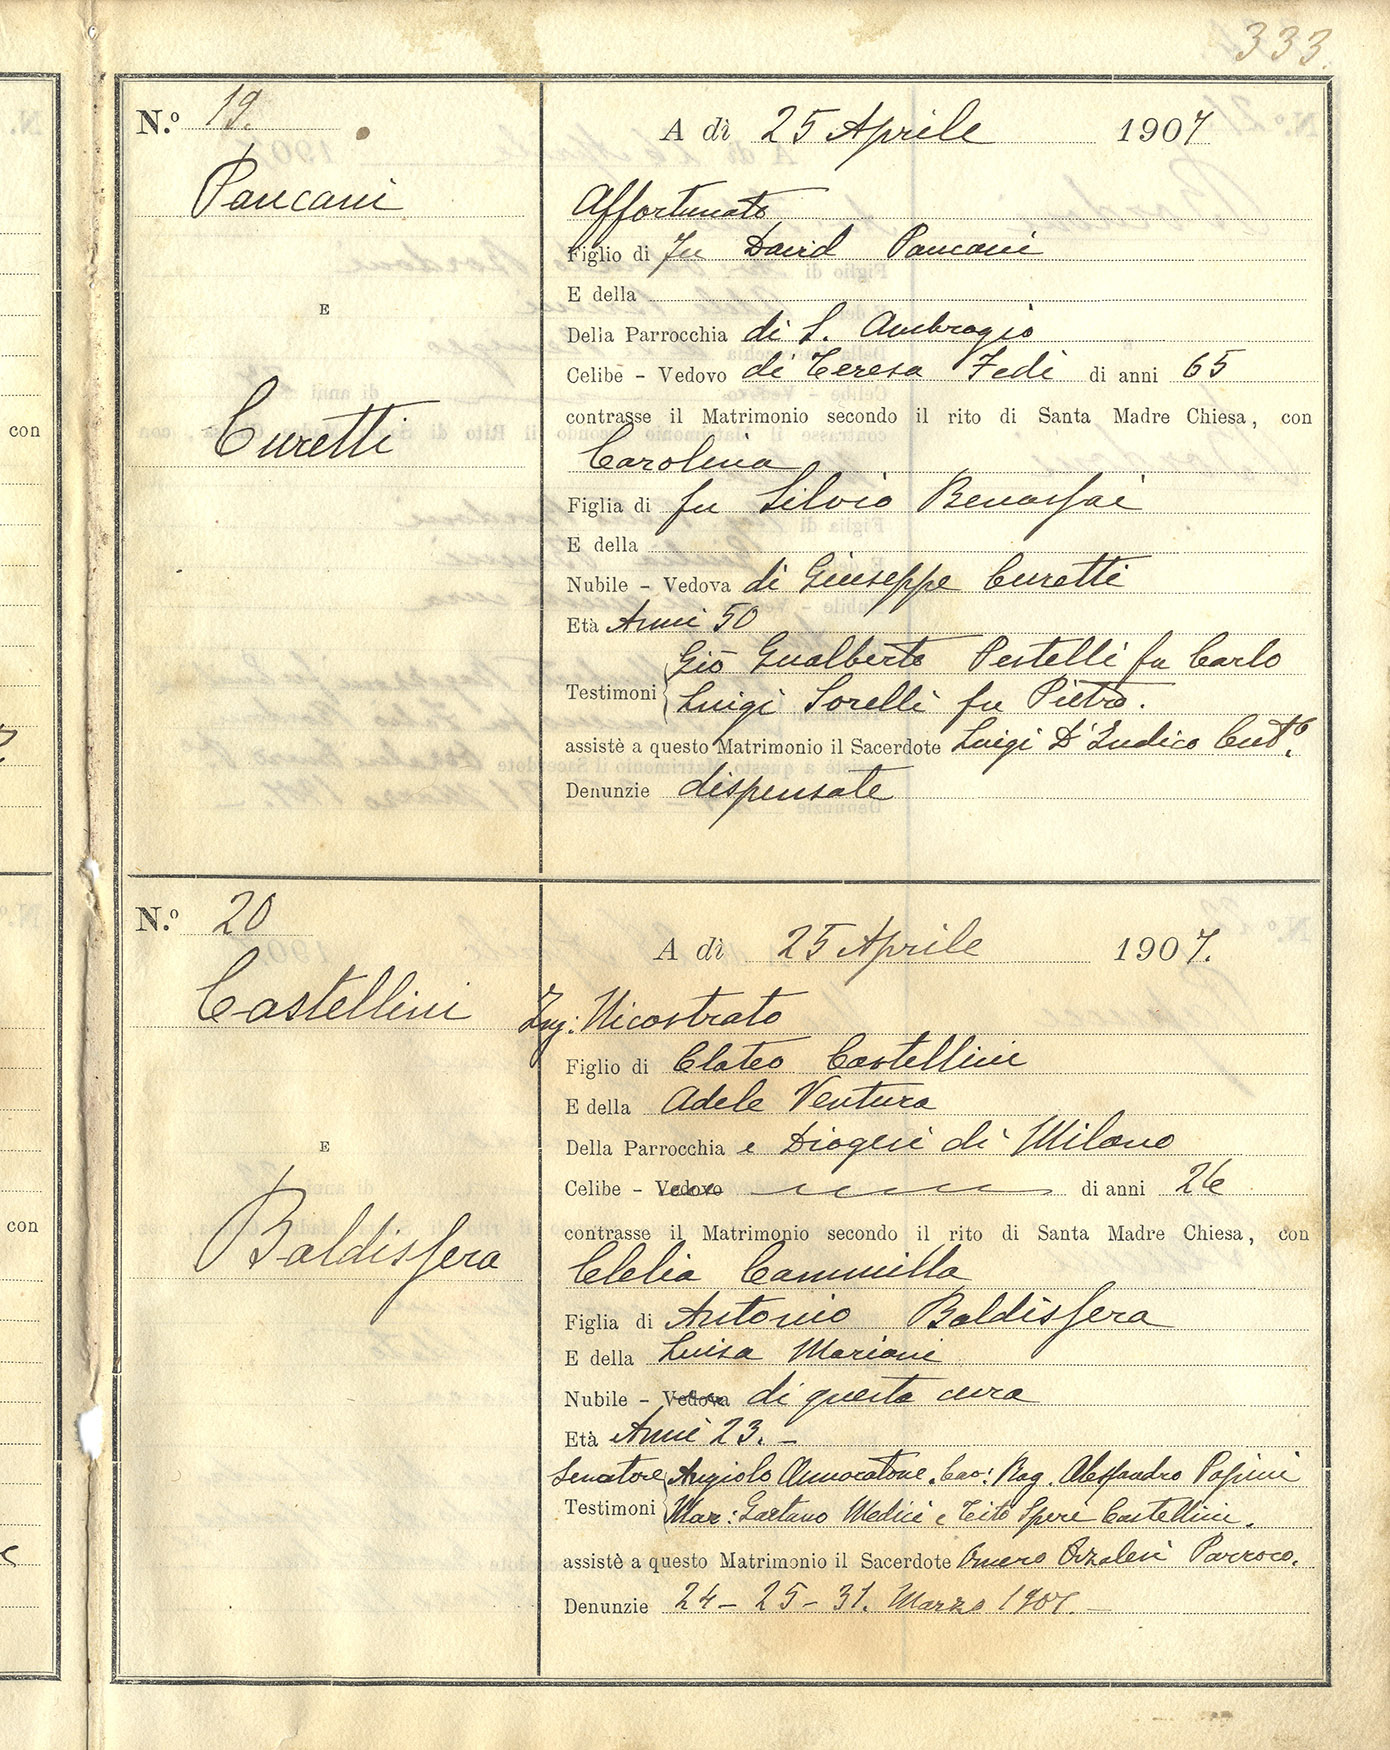 333.
N.º 19.
Pancani
E
Curetti
A dì 25 Aprile 1907
Affortunato
Figlio di fu David Pancani
E della
Della Parrocchia di S. Ambrogio
Celibe - Vedovo di Teresa Fedi di anni 65
contrasse il Matrimonio secondo il rito di Santa Madre Chiesa, con
Carolina
Figlia di fu Silvio Benassai
E della
Nubile - Vedova di Giuseppe Curetti
Età Anni 50
Gio Gualberto Pestelli fu Carlo
Testimoni Luigi Sorelli fu Pietro.
assistè a questo Matrimonio il Sacerdote Luigi D'Indico
Denunzie dispensate
N.º 20
Castellini
E
Baldissera
A dì 25 Aprile 1907.
Ing: Nicostrato
Figlio di Clateo Castellini
E della Adele Ventura
Della Parrocchia e Diogesi di Milano
Celibe - Vedovo di anni 26
contrasse il Matrimonio secondo il rito di Santa Madre Chiesa, con
Clelia Cammilla
Figlia di Antonio Baldissera
E della Luisa Mariani
Nubile - Vedova di questa cura
Età Anni 23. -
Senatore Angiolo Annoratone. Cav: Rag. Alessandro Papini
Testimoni Mar: Gaetano Medici e Tito Speri Castellini.
assistè a questo Matrimonio il Sacerdote Omero Orzalesi Parroco.
Denunzie 24 - 25 - 31. Marzo 1907. -
con
con